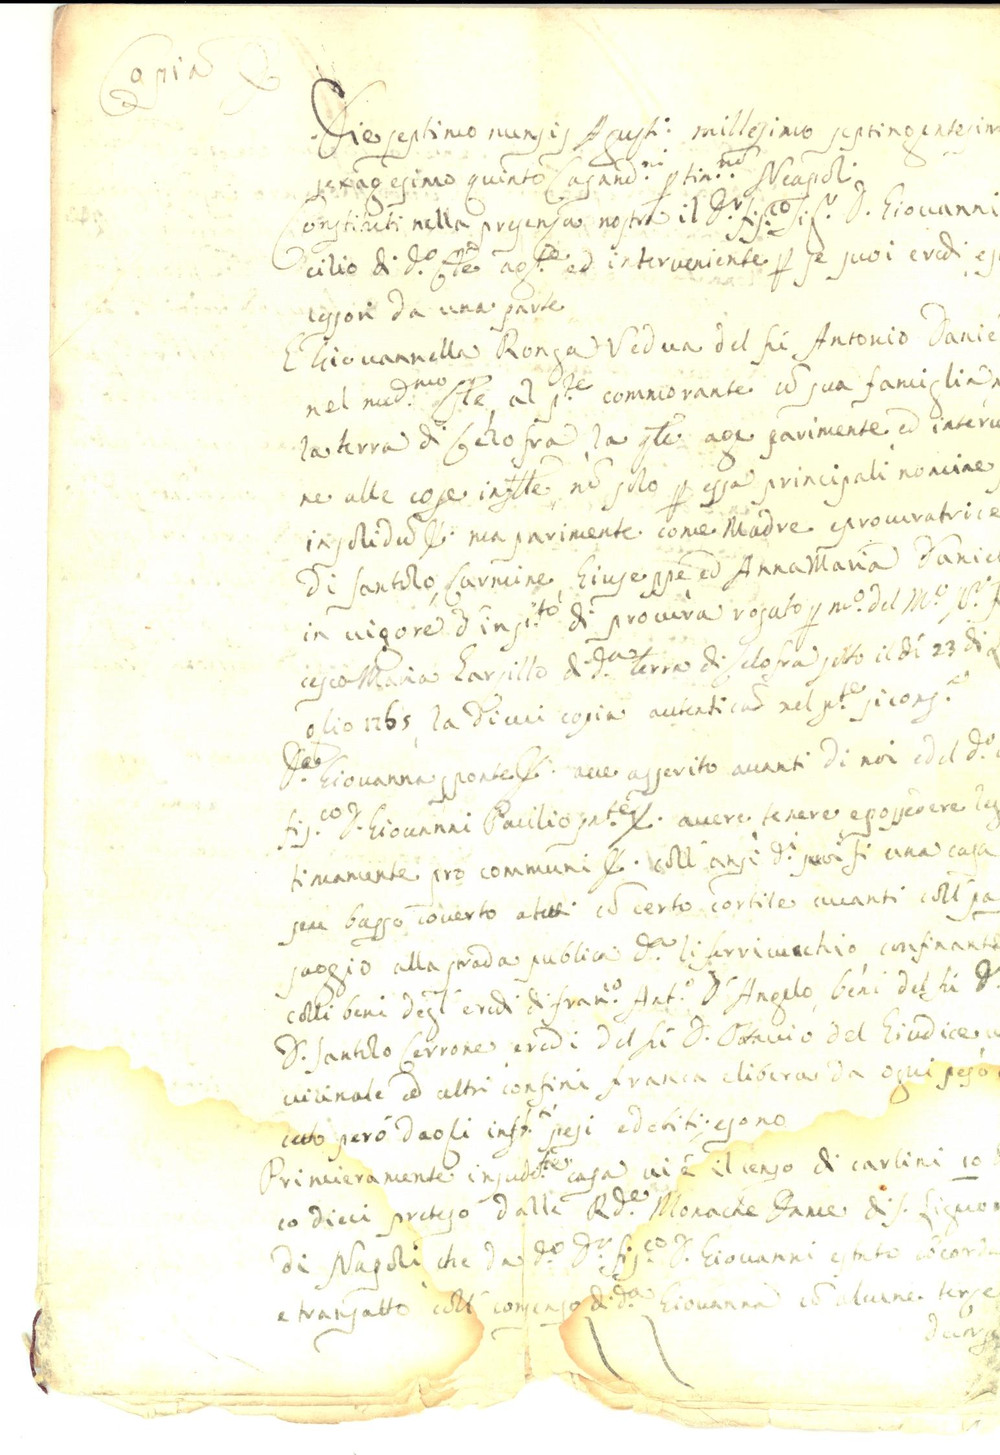 Copia
Die septimo mensis Agusti millesimo septingentesimo
sexagesimo quinto Neapoli
Constituti nella presenza nostra il D.r fis.co Sig.r D. Giovanni
cilio di d.o ag.te ed interveniente p se suoi eredi e
cessori da una parte
E Giovannella Ronga Vedua del fù Antonio Danie
nel med.mo al p.te commorante cõ sua famiglia
la terra di Celofra, la q.le age parimente ed interv
ne alle cose inf.tte nõ solo p essa principali nomine
insolidũ &. ma parimente come Madre e procuratrice
di Santolo, Carmine, Giuseppe ed Anna Maria Danie
in vigore d'ins.to di procura rogato p m.o del M.o
cesco Maria Garzillo di d.a terra di Celofra sotto il dì 23 di
glio 1765, la di cui copia autentica nel p.te si cons.
D.a Giovanna sponte &. ave asserito avanti di noi e del d.o
fis.co D. Giovanni Pacilio p.nte &. avere, tenere e possedere leg
timamente pro communi &. coll' ansi d.i suoi fi una casa
seu basso coverto a tetti cõ certo cortile avanti coll pa
saggio alla strada publica d.a li ferrivecchio confinante
colli beni degl' eredi di Fran.co Ant.o D'Angelo, beni del fù D.
D. Santolo Cerrone, eredi del fù D. Ottavio del Giudice
vicinale ed altri confini franca e libera da ogni peso
cetto però dagli infr.tti pesi e debiti; e sono
Primieramente in sud.tta casa vi è il censo di carlini 10
co dieci preteso dalle R.de Monache Dame di S. Liguor
di Napoli che da d.o D.r fis.co D. Giovanni è stato cõcord
e transatto coll' consenso di d.a Giovanna cõ alcune terze